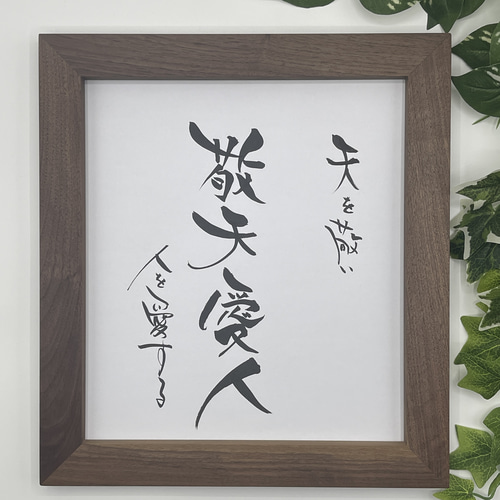 天を敬い
敬天愛人
人を愛する